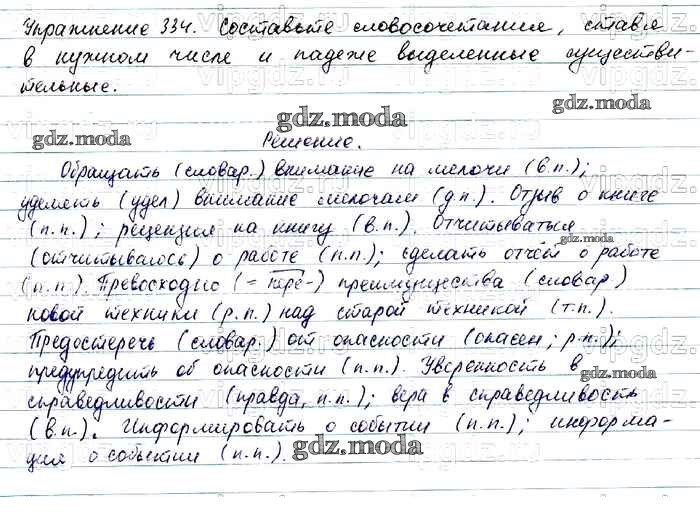 Упражнение 334. Составьте словосочетания, ставя
в нужном числе и падеже выделенные существи-
тельные.
gdz.moda
gdz.moda
Решение.
Обращать (словар.) внимание на мелочи (в.п.);
уделять (удел) внимание мелочам (д.п.). Отзыв о книге
(п.п.); рецензия на книгу (в.п.). Отчитываться
gdz.moda
(отчитывалось) о работе (п.п.); сделать отчёт о работе
(п.п.). Превосходно (= пере-) преимущества (словар)
новой техники (р.п.) над старой техникой (т.п.).
gdz.moda
Предостеречь (словар.) от опасности (опасен; р.п.);
gdz.moda
предупредить об опасности (п.п.). Уверенность в
справедливости (правда, п.п.); вера в справедливость
gdz.moda
(в.п.). Информировать о событии (п.п.); информа-
gdz.moda
ция о событии (п.п.).
gdz.moda